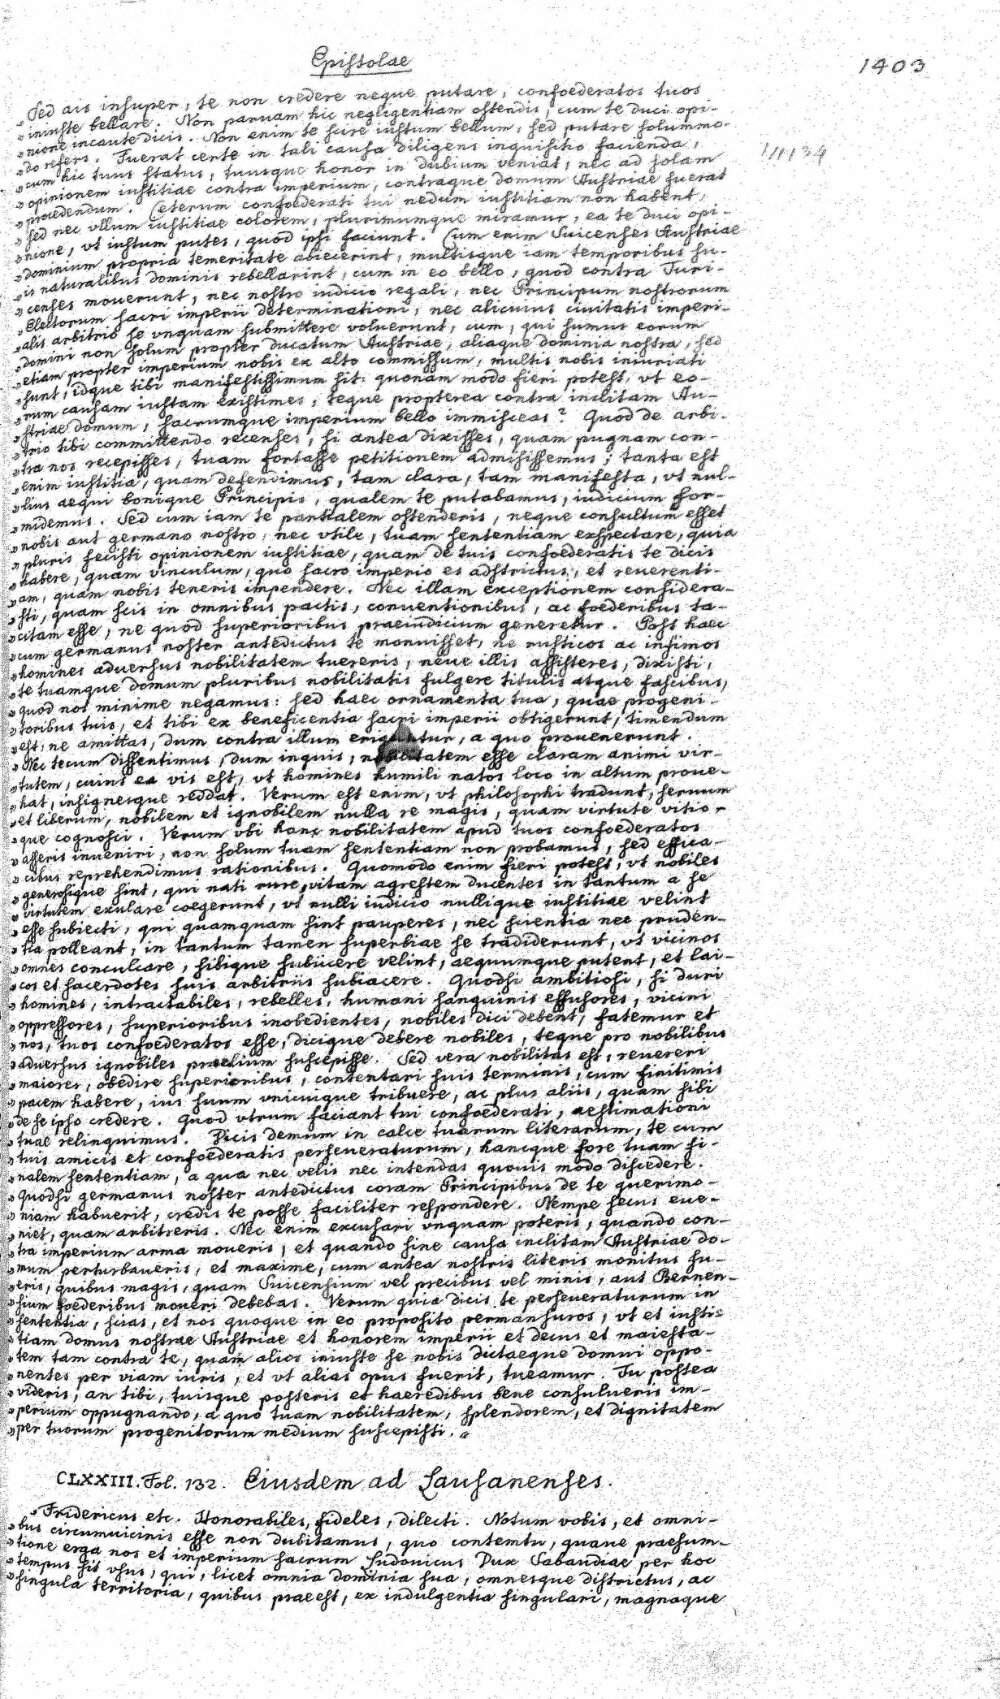 Epistolae
1403
„Sed ais insuper, te non credere neque putare, confoederatos tuos
„iniuste bellare. Non paruam hic negligentiam ostendis, cum te duci opi-
„nione incaute dicis. Non enim te scire iustum bellum, sed putare solummo-
„do refers. Fuerat certe in tali causa diligens inquisitio facienda,
„cum hic tuus status, tuusque honor in dubium veniat, nec ad solam
„opinionem iustitiae contra imperium, contraque domum Austriae fuerat
„procedendum. Ceterum confoederati tui nedum iustitiam non habent,
„sed nec vllum iustitiae colorem, plurimumque miramur, ea te duci opi-
„nione, vt iustum putes, quod ipsi faciunt. Cum enim Suicenses Austriae
„dominium propria temeritate abiecerint, multisque iam temporibus su-
„is naturalibus dominis rebellarint, cum in eo bello, quod contra Turi-
„censes mouerunt, nec nostro iudicio regali, nec Principum nostrorum
„Electorum sacri imperii determinationi, nec alicuius ciuitatis imperi-
„alis arbitrio se vnquam submittere voluerunt, cum, qui sumus eorum
„domini non solum propter ducatum Austriae, aliaque dominia nostra, sed
„etiam propter imperium nobis ex alto commissum, multis nobis iniuriati
„sunt, idque tibi manifestissimum sit: quonam modo fieri potest, vt eo-
„rum causam iustam existimes, teque propterea contra inclitam Au-
„striae domum, sacrumque imperium bello immisceas? Quod de arbi-
„trio tibi committendo recenses, si antea dixisses, quam pugnam con-
„tra nos recepisses, tuam fortasse petitionem admisissemus; tanta est
„enim iustitia, quam defendimus, tam clara, tam manifesta, vt nul-
„lius aequi bonique Principis, qualem te putabamus, iudicium for-
„midemus. Sed cum iam te partialem ostenderis, neque consultum esset
„nobis aut germano nostro, nec vtile, tuam sententiam exspectare, quia
„pluris fecisti opinionem iustitiae, quam de tuis confoederatis te dicis
„habere, quam vinculum, quo sacro imperio es adstrictus, et reuerenti-
„am, quam nobis teneris impendere. Nec illam exceptionem considera-
„sti, quam scis in omnibus pactis, conuentionibus, ac foederibus ta-
„citam esse, ne quod superioribus praeiudicium generetur. Post haec
„cum germanus noster antedictus te monuisset, ne rusticos ac infimos
„homines aduersus nobilitatem tuereris, neue illis assisteres, dixisti,
„te tuamque domum pluribus nobilitatis fulgere titulis atque fascibus,
„quod nos minime negamus: sed haec ornamenta tua, quae progeni-
„toribus tuis, et tibi ex beneficentia sacri imperii obtigerunt, timendum
„est, ne amittas, dum contra illum eriguntur, a quo prouenerunt.
„Nec tecum dissentimus, dum inquis, nobilitatem esse claram animi vir-
„tutem, cuius ea vis est, vt homines humili natos loco in altum proue-
„hat, insignesque reddat. Verum est enim, vt philosophi tradunt, seruum
„et liberum, nobilem et ignobilem nulla re magis, quam virtute vitio-
„que cognosci. Verum vbi hanc nobilitatem apud tuos confoederatos
„asseris inueniri, non solum tuam sententiam non probamus, sed effica-
„cibus reprehendimus rationibus. Quomodo enim fieri potest, vt nobiles
„generosique sint, qui nati rure, vitam agrestem ducentes in tantum a se
„virtutem exulare coegerunt, vt nulli iudicio nullique iustitiae velint
„esse subiecti, qui quamquam sint pauperes, nec scientia nec pruden-
„tia polleant, in tantum tamen superbiae se tradiderunt, vt vicinos
„omnes conculcare, sibique subiicere velint, aequumque putent, et lai-
„cos et sacerdotes suis arbitriis subiacere. Quodsi ambitiosi, si duri
„homines, intractabiles, rebelles, humani sanguinis effusores, vicini
„oppressores, superioribus inobedientes, nobiles dici debent, fatemur et
„nos, tuos confoederatos esse, dicique debere nobiles, teque pro nobilibus
„aduersus ignobiles praelium suscepisse. Sed vera nobilitas est, reuereri
„maiores, obedire superioribus, contentari suis terminis, cum finitimis
„pacem habere, ius suum vnicuique tribuere, ac plus aliis, quam sibi
„de se ipso credere. Quod vtrum faciant tui confoederati, aestimationi
„tuae relinquimus. Dicis demum in calce tuarum literarum, te cum
„tuis amicis et confoederatis perseueraturum, hancque fore tuam fi-
„nalem sententiam, a qua nec velis nec intendas quouis modo discedere.
„Quodsi germanus noster antedictus coram Principibus de te querimo-
„niam habuerit, credis te posse faciliter respondere. Nempe secus eue-
„niet, quam arbitreris. Nec enim excusari vnquam poteris, quando con-
„tra imperium arma moueris, et quando sine causa inclitam Austriae do-
„mum perturbaueris, et maxime, cum antea nostris literis monitus fu-
„eris, quibus magis, quam Suicensium vel precibus vel minis, aut Bernen-
„sium foederibus moueri debebas. Verum quia dicis te perseueraturum in
„sententia, scias, et nos quoque in eo proposito permansuros, vt et iusti-
„tiam domus nostrae Austriae et honorem imperii et decus et maiesta-
„tem tam contra te, quam alios iniuste se nobis dictaeque domui oppo-
„nentes per viam iuris, et vt alias opus fuerit, tueamur. Tu postea
„videris, an tibi, tuisque posteris et haeredibus bene consulueris im-
„perium oppugnando, a quo tuam nobilitatem, splendorem, et dignitatem
„per tuorum progenitorum medium suscepisti. „
CLXXIII. Fol. 132. Eiusdem ad Lausanenses.
„Fridericus etc. Honorabiles, fideles, dilecti. Notum vobis, et omni-
„bus circumuicinis esse non dubitamus, quo contemtu, quaue praesum-
„tione erga nos et imperium sacrum Ludouicus Dux Sabaudiae per hoc
„tempus sit vsus, qui, licet omnia dominia sua, omnesque districtus, ac
„singula territoria, quibus praeest, ex indulgentia singulari, magnaque